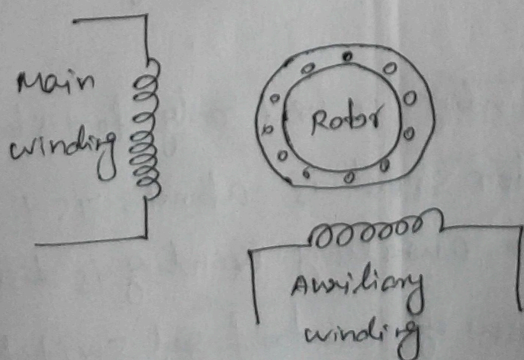 Main
winding
Rotor
Auxiliary
winding